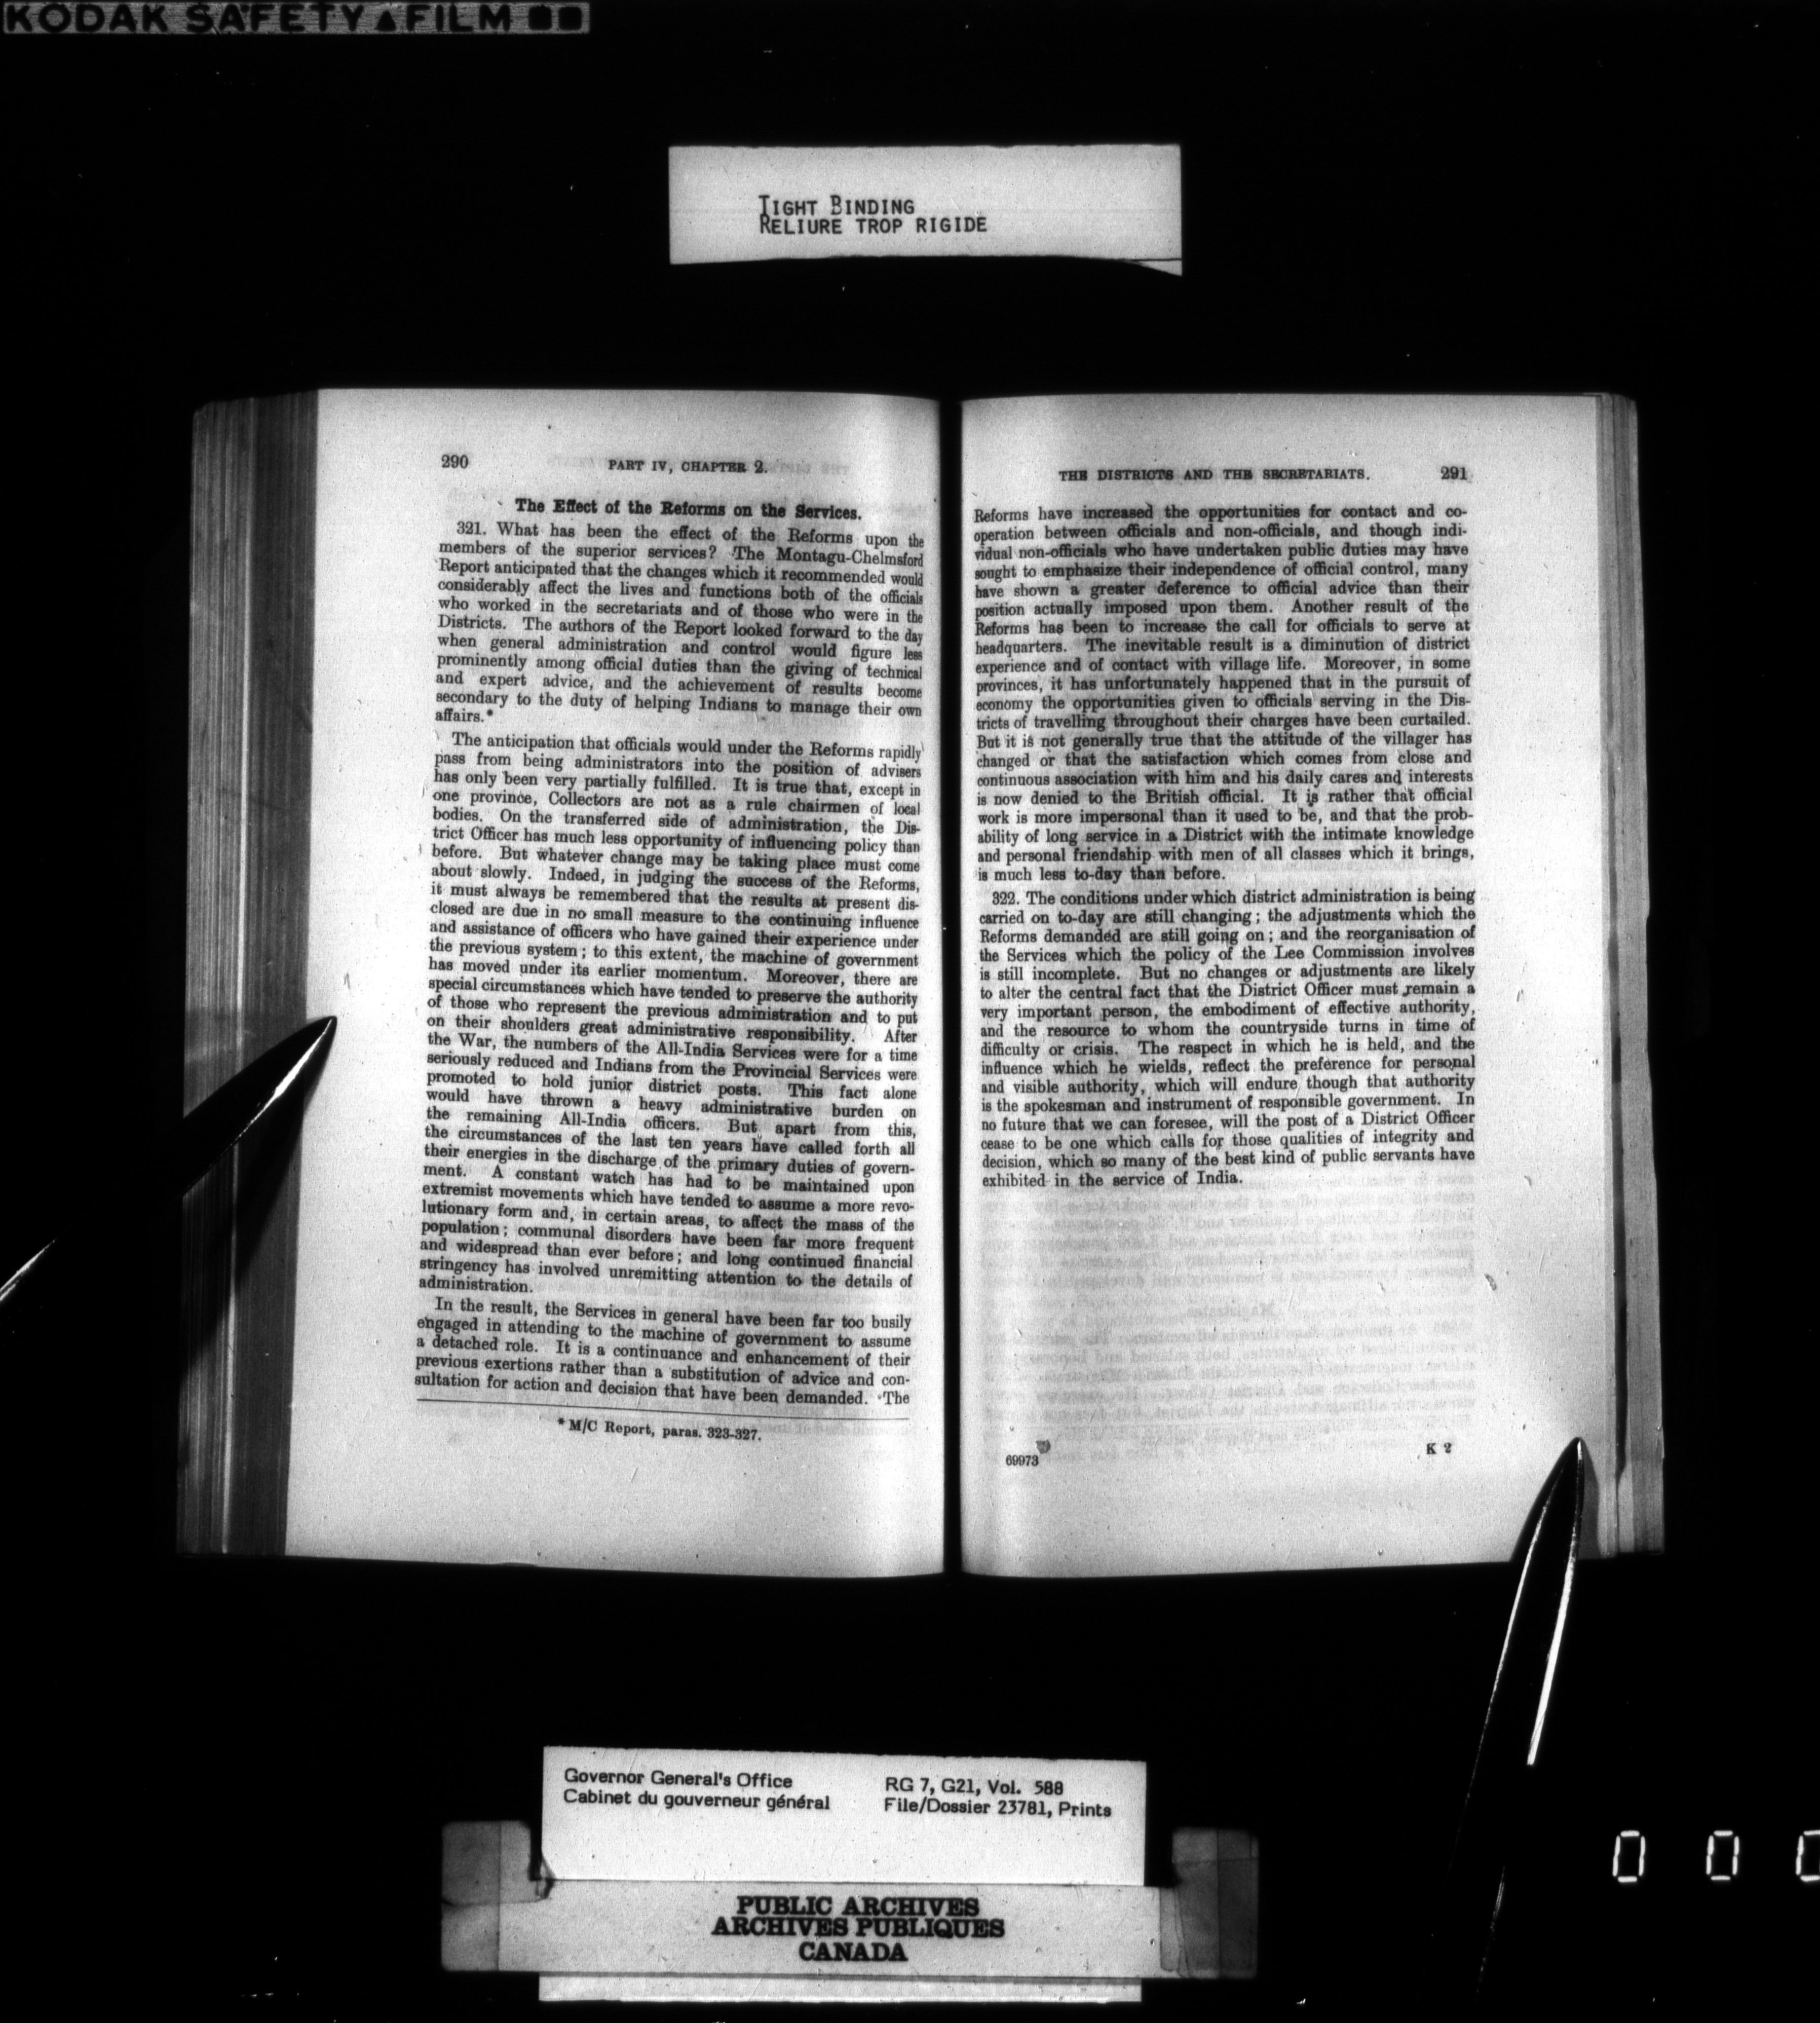 KODAK SAFETY FILM
TIGHT BINDING
RELIURE TROP RIGIDE
290
PART IV, CHAPTER 2.
The Effect of the Reforms on the Services.
321. What has been the effect of the Reforms upon the
members of the superior services? The Montagu-Chelmsford
Report anticipated that the changes which it recommended would
considerably affect the lives and functions both of the officials
who worked in the secretariats and of those who were in the
Districts. The authors of the Report looked forward to the day
when general administration and control would figure less
prominently among official duties than the giving of technical
and expert advice, and the achievement of results become
secondary to the duty of helping Indians to manage their own
affairs.*
The anticipation that officials would under the Reforms rapidly
pass from being administrators into the position of advisers
has only been very partially fulfilled. It is true that, except in
one province, Collectors are not as a rule chairmen of local
bodies. On the transferred side of administration, the Dis-
trict Officer has much less opportunity of influencing policy than
before. But whatever change may be taking place must come
about slowly. Indeed, in judging the success of the Reforms,
it must always be remembered that the results at present dis-
closed are due in no small measure to the continuing influence
and assistance of officers who have gained their experience under
the previous system; to this extent, the machine of government
has moved under its earlier momentum. Moreover, there are
special circumstances which have tended to preserve the authority
of those who represent the previous administration and to put
on their shoulders great administrative responsibility. After
the War, the numbers of the All-India Services were for a time
seriously reduced and Indians from the Provincial Services were
promoted to hold junior district posts. This fact alone
would have thrown a heavy administrative burden on
the remaining All-India officers. But apart from this,
the circumstances of the last ten years have called forth all
their energies in the discharge of the primary duties of govern-
ment. A constant watch has had to be maintained upon
extremist movements which have tended to assume a more revo-
lutionary form and, in certain areas, to affect the mass of the
population; communal disorders have been far more frequent
and widespread than ever before; and long continued financial
stringency has involved unremitting attention to the details of
administration.
In the result, the Services in general have been far too busily
engaged in attending to the machine of government to assume
a detached role. It is a continuance and enhancement of their
previous exertions rather than a substitution of advice and con-
sultation for action and decision that have been demanded. The
* M/C Report, paras. 323-327.
THE DISTRICTS AND THE SECRETARIATS.
291
Reforms have increased the opportunities for contact and co-
operation between officials and non-officials, and though indi-
vidual non-officials who have undertaken public duties may have
sought to emphasize their independence of official control, many
have shown a greater deference to official advice than their
position actually imposed upon them. Another result of the
Reforms has been to increase the call for officials to serve at
headquarters. The inevitable result is a diminution of district
experience and of contact with village life. Moreover, in some
provinces, it has unfortunately happened that in the pursuit of
economy the opportunities given to officials serving in the Dis-
tricts of travelling throughout their charges have been curtailed.
But it is not generally true that the attitude of the villager has
changed or that the satisfaction which comes from close and
continuous association with him and his daily cares and interests
is now denied to the British official. It is rather that official
work is more impersonal than it used to be, and that the prob-
ability of long service in a District with the intimate knowledge
and personal friendship with men of all classes which it brings,
is much less to-day than before.
322. The conditions under which district administration is being
carried on to-day are still changing; the adjustments which the
Reforms demanded are still going on; and the reorganisation of
the Services which the policy of the Lee Commission involves
is still incomplete. But no changes or adjustments are likely
to alter the central fact that the District Officer must remain a
very important person, the embodiment of effective authority,
and the resource to whom the countryside turns in time of
difficulty or crisis. The respect in which he is held, and the
influence which he wields, reflect the preference for personal
and visible authority, which will endure though that authority
is the spokesman and instrument of responsible government. In
no future that we can foresee, will the post of a District Officer
cease to be one which calls for those qualities of integrity and
decision, which so many of the best kind of public servants have
exhibited in the service of India.
69973
K 2
Governor General's Office
Cabinet du gouverneur général
RG 7, G21, Vol. 588
File/Dossier 23781, Prints
PUBLIC ARCHIVES
ARCHIVES PUBLIQUES
CANADA
0 0 0